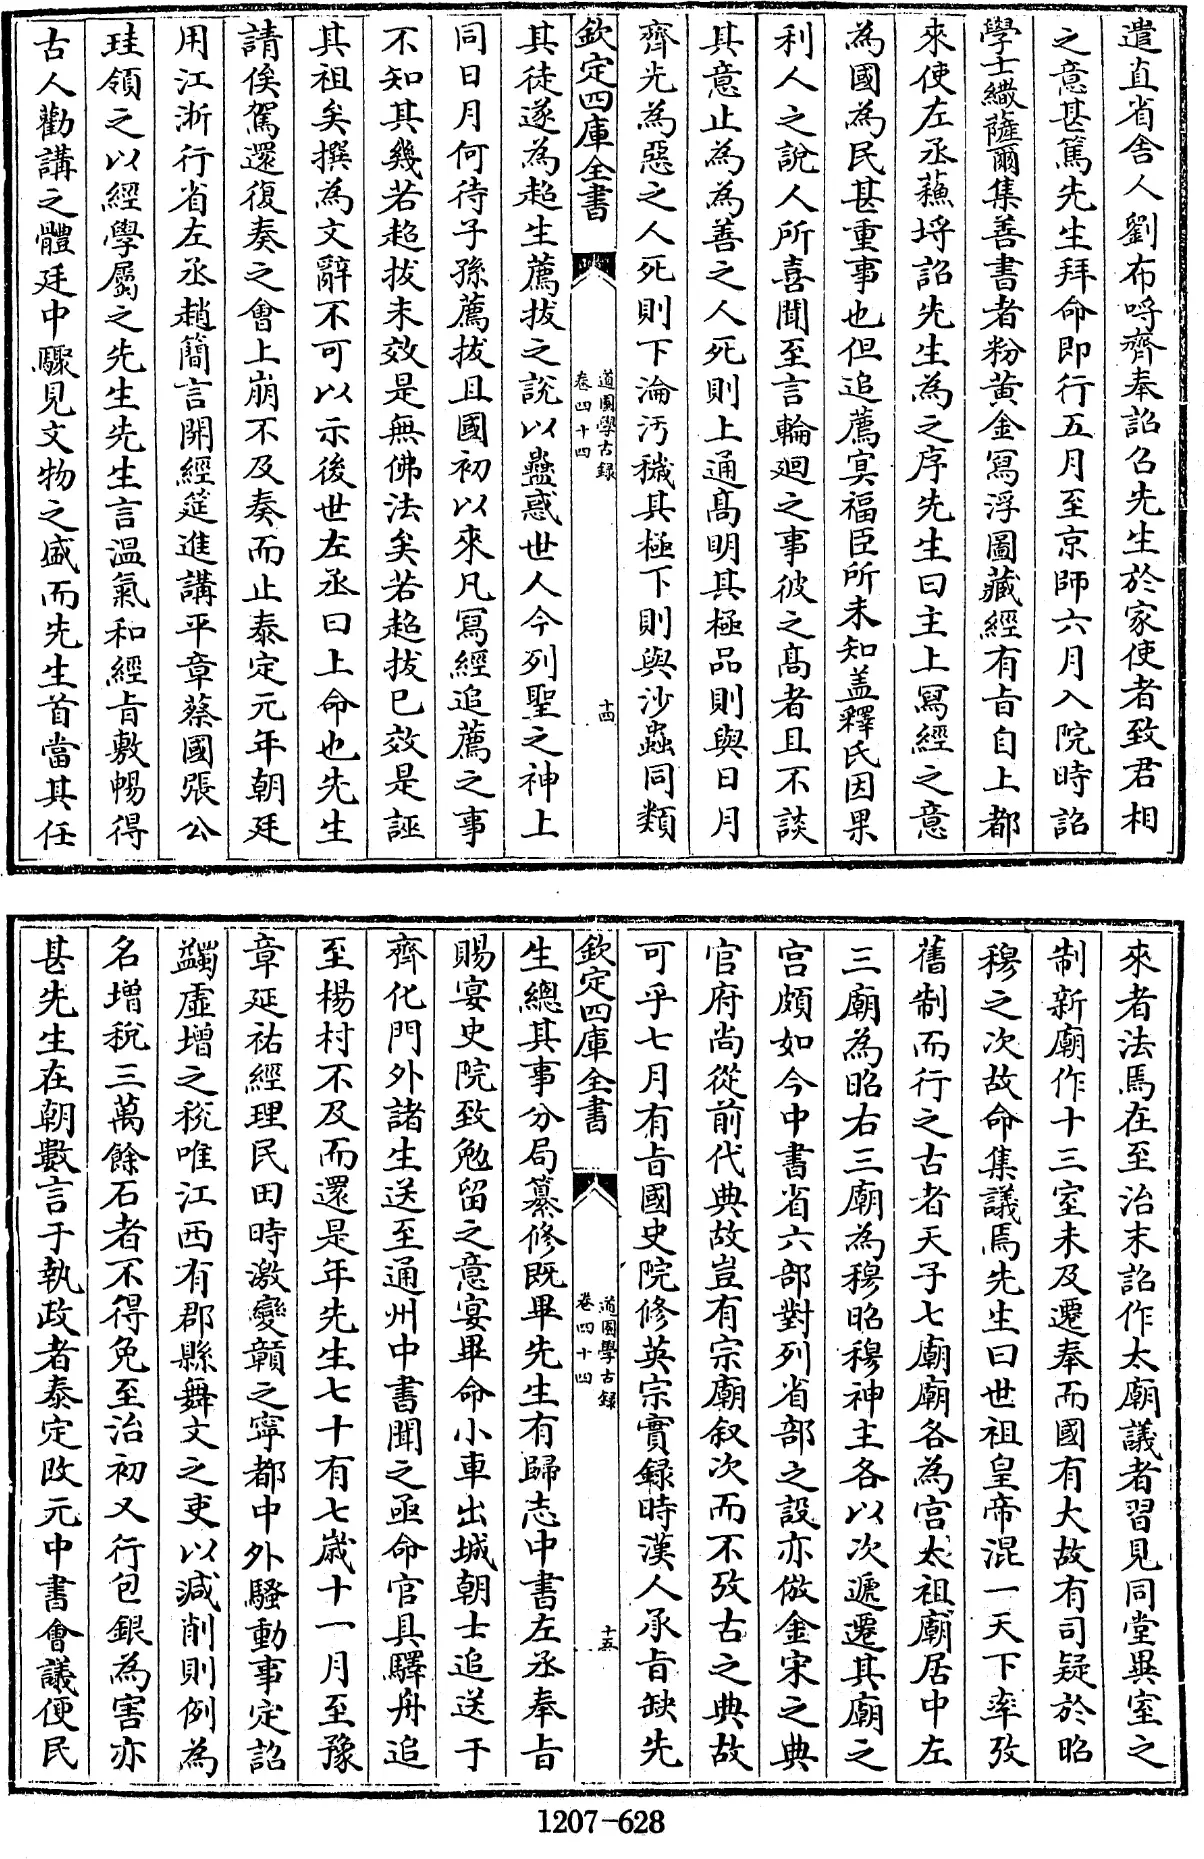 遣直省舍人劉布哷齊奉詔召先生於家使者致君相
之意甚篤先生拜命即行五月至京師六月入院時詔
學士繖薩爾集善書者粉黄金寫浮圖藏經有旨自上都
來使左丞蘓埒詔先生為之序先生曰主上寫經之意
為國為民甚重事也但追薦㝠福臣所未知盖釋氏因果
利人之說人所喜聞至言輪廻之事彼之髙者且不談
其意止為為善之人死則上通髙明其極品則與日月
齊光為惡之人死則下淪汚穢其極下則與沙蟲同類
欽定四庫全書
道園學古録
卷四十四
十四
其徒遂為超生薦拔之說以蠱惑世人今列聖之神上
同日月何待子孫薦拔且國初以來凡寫經追薦之事
不知其幾若超拔未效是無佛法矣若超拔已效是誣
其祖矣撰為文辭不可以示後世左丞曰上命也先生
請俟駕還復奏之會上崩不及奏而止泰定元年朝廷
用江浙行省左丞趙簡言開經筵進講平章蔡國張公
珪領之以經學屬之先生先生言温氣和經旨敷暢得
古人勸講之體廷中驟見文物之盛而先生首當其任
來者法焉在至治末詔作太廟議者習見同堂異室之
制新廟作十三室未及遷奉而國有大故有司疑於昭
穆之次故命集議焉先生曰世祖皇帝混一天下率攷
舊制而行之古者天子七廟廟各為宫太祖廟居中左
三廟為昭右三廟為穆昭穆神主各以次遞遷其廟之
宫頗如今中書省六部對列省部之設亦倣金宋之典
官府尚從前代典故豈有宗廟叙次而不攷古之典故
可乎七月有旨國史院修英宗實録時漢人承旨缺先
欽定四庫全書
道園學古録
卷四十四
十五
生總其事分局纂修既畢先生有歸志中書左丞奉旨
賜宴史院致勉留之意宴畢命小車出城朝士追送于
齊化門外諸生送至通州中書聞之亟命官具驛舟追
至楊村不及而還是年先生七十有七歳十一月至豫
章延祐經理民田時激變贑之寧都中外騷動事定詔
蠲虚增之税唯江西有郡縣舞文之吏以減削則例為
名增税三萬餘石者不得免至治初又行包銀為害亦
甚先生在朝數言于執政者泰定改元中書會議便民
1207-628